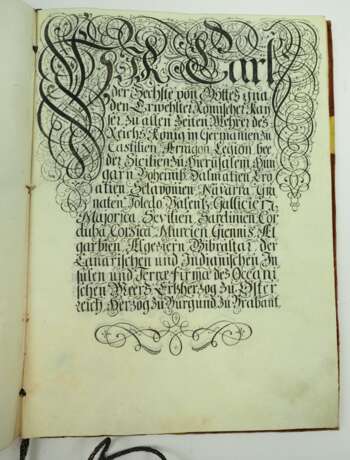 Wir Carl
der Sechste von Gottes gna
den Erwehlter Römischer Kay
ser zu allen Zeiten Mehrer des
Reichs König in Germanien zu
Castilien Arragon Legion bee
der Sicilien zu Hierusalem Hun
garn Boheimb Dalmatien Cro
atien Sclavonien Navarra Gra
naten Toledo Valentz Gallicien
Majorica Sevilien Sardinien Cor
duba Corsica Murcien Giennis Al
garbien Algezern Gibraltar der
Canarischen und Indianischen In
sulen und Terræ firmæ des Oceani
schen Meers Ertzherzog zu Öster
reich Herzog zu Burgund zu Brabant